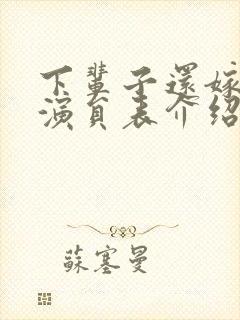 下輩子還嫁
演員表介紹
蘇塞曼